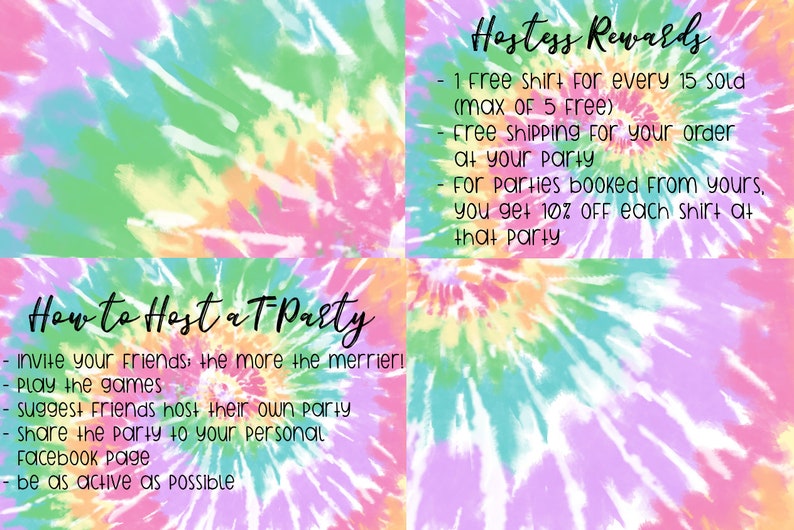 Hostess Rewards
- 1 Free shirt for every 15 sold
(max of 5 free)
- Free shipping for your order
at your party
- For parties booked from yours,
you get 10% off each shirt at
that party
How to Host a T-Party
- Invite your friends; the more the merrier!
- Play the games
- Suggest friends host their own party
- Share the party to your personal
Facebook page
- Be as active as possible